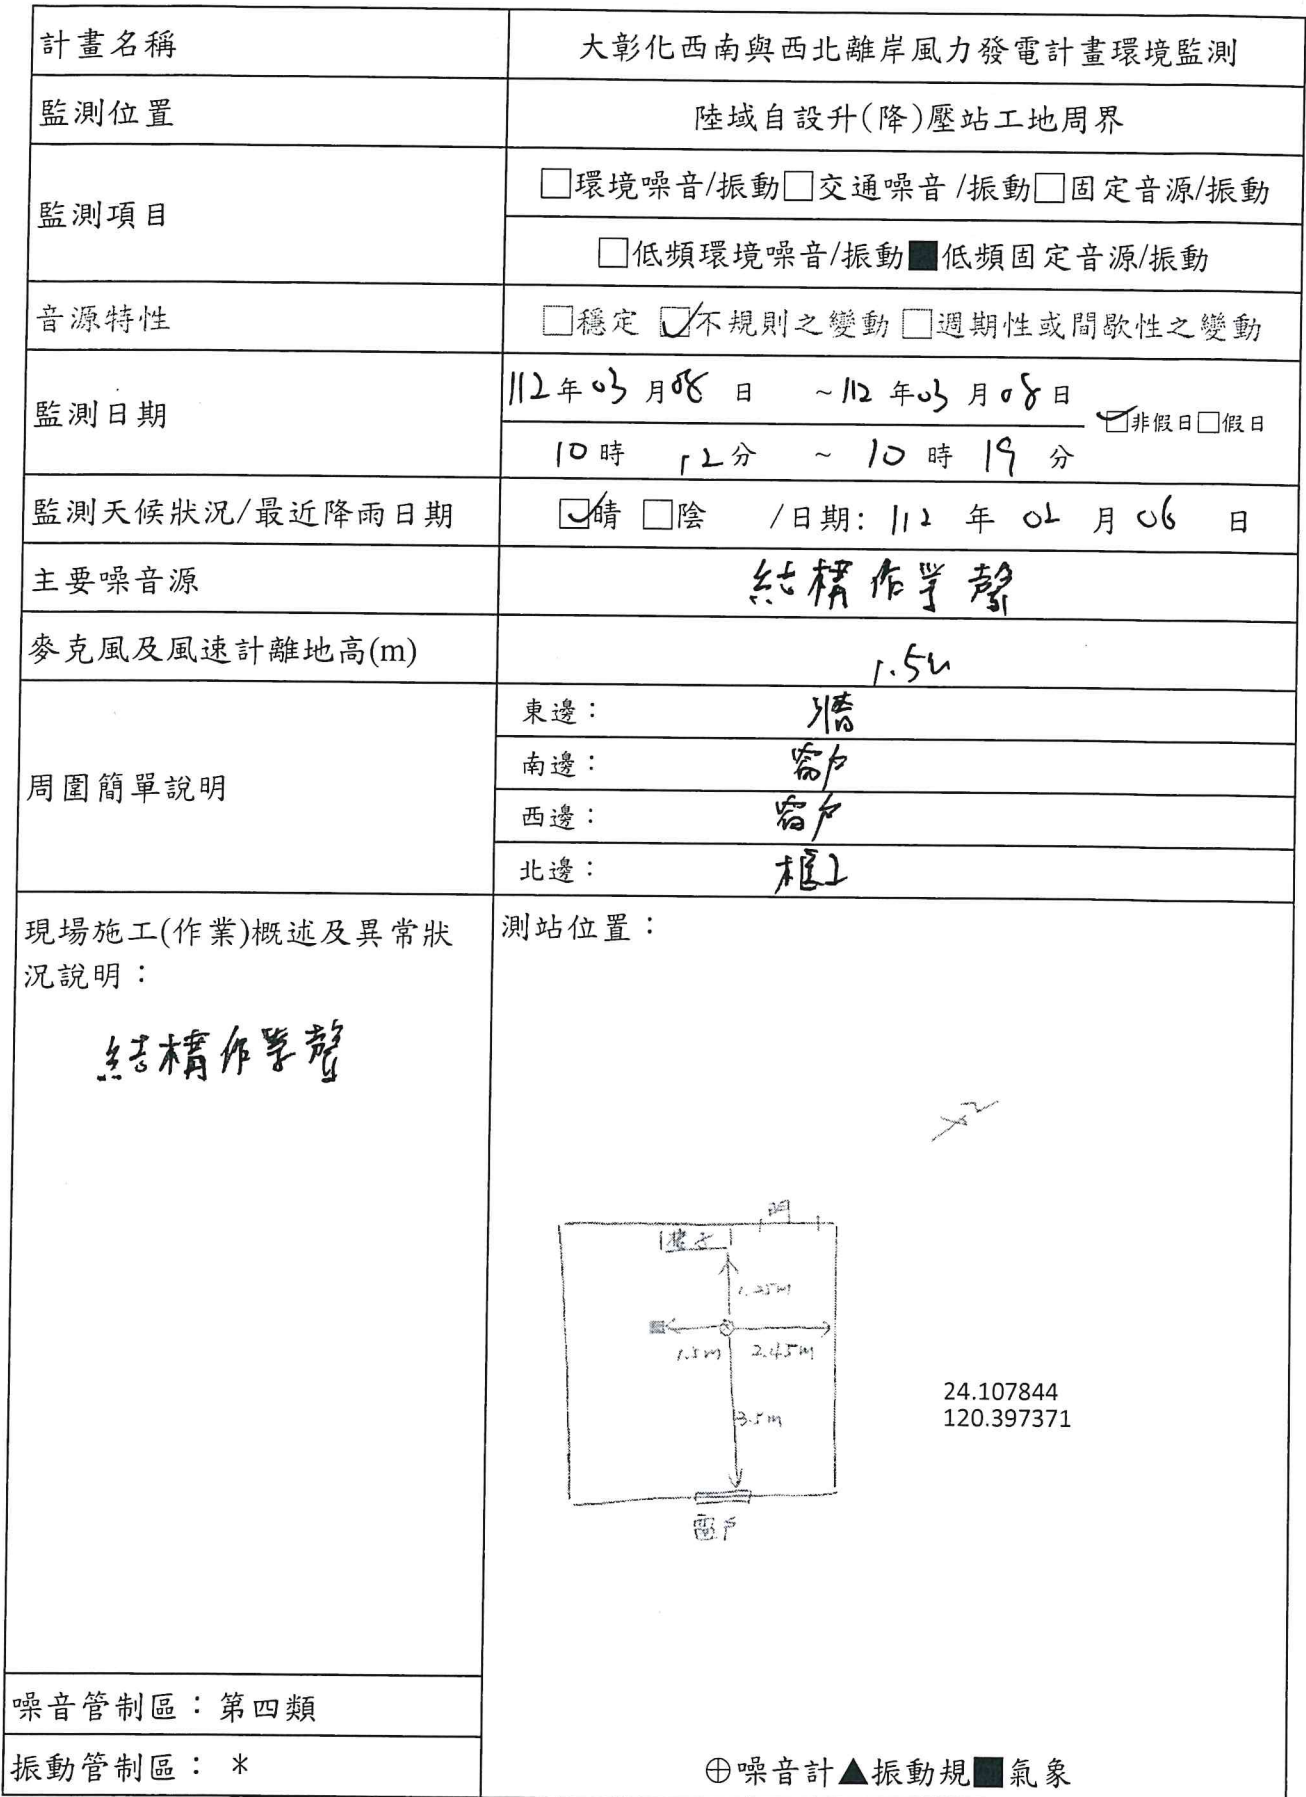 計畫名稱
大彰化西南與西北離岸風力發電計畫環境監測
監測位置
陸域自設升(降)壓站工地周界
監測項目
□環境噪音/振動□交通噪音/振動□固定音源/振動
□低頻環境噪音/振動■低頻固定音源/振動
音源特性
□穩定 ☑不規則之變動 □週期性或間歇性之變動
監測日期
112年03月08日 ~112年03月08日
☑非假日□假日
10時12分 ~ 10時19分
監測天候狀況/最近降雨日期
☑晴 □陰 /日期: 112 年 02 月 06 日
主要噪音源
結構作業聲
麥克風及風速計離地高(m)
1.5m
周圍簡單說明
東邊：牆
南邊：窗戶
西邊：窗戶
北邊：
現場施工(作業)概述及異常狀
況說明：
結構作業聲
測站位置：
門
1.25m
1.5m 2.45m
3.5m
窗戶
24.107844
120.397371
噪音管制區：第四類
振動管制區： *
⊕噪音計▲振動規■氣象